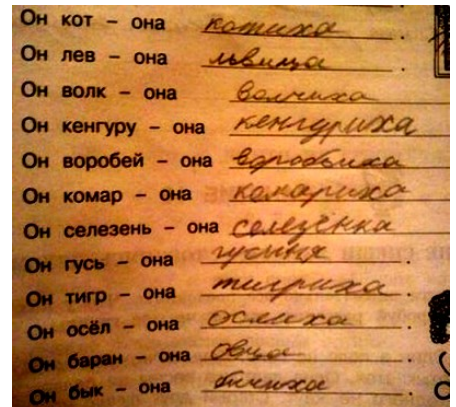 Он кот – она котиха.
Он лев – она львица.
Он волк – она волчиха.
Он кенгуру – она кенгуриха
Он воробей – она воробьиха
Он комар – она комариха
Он селезень – она селезёнка
Он гусь – она гусиня.
Он тигр – она тигриха.
Он осёл – она ослиха.
Он баран – она овца.
Он бык – она бычиха.